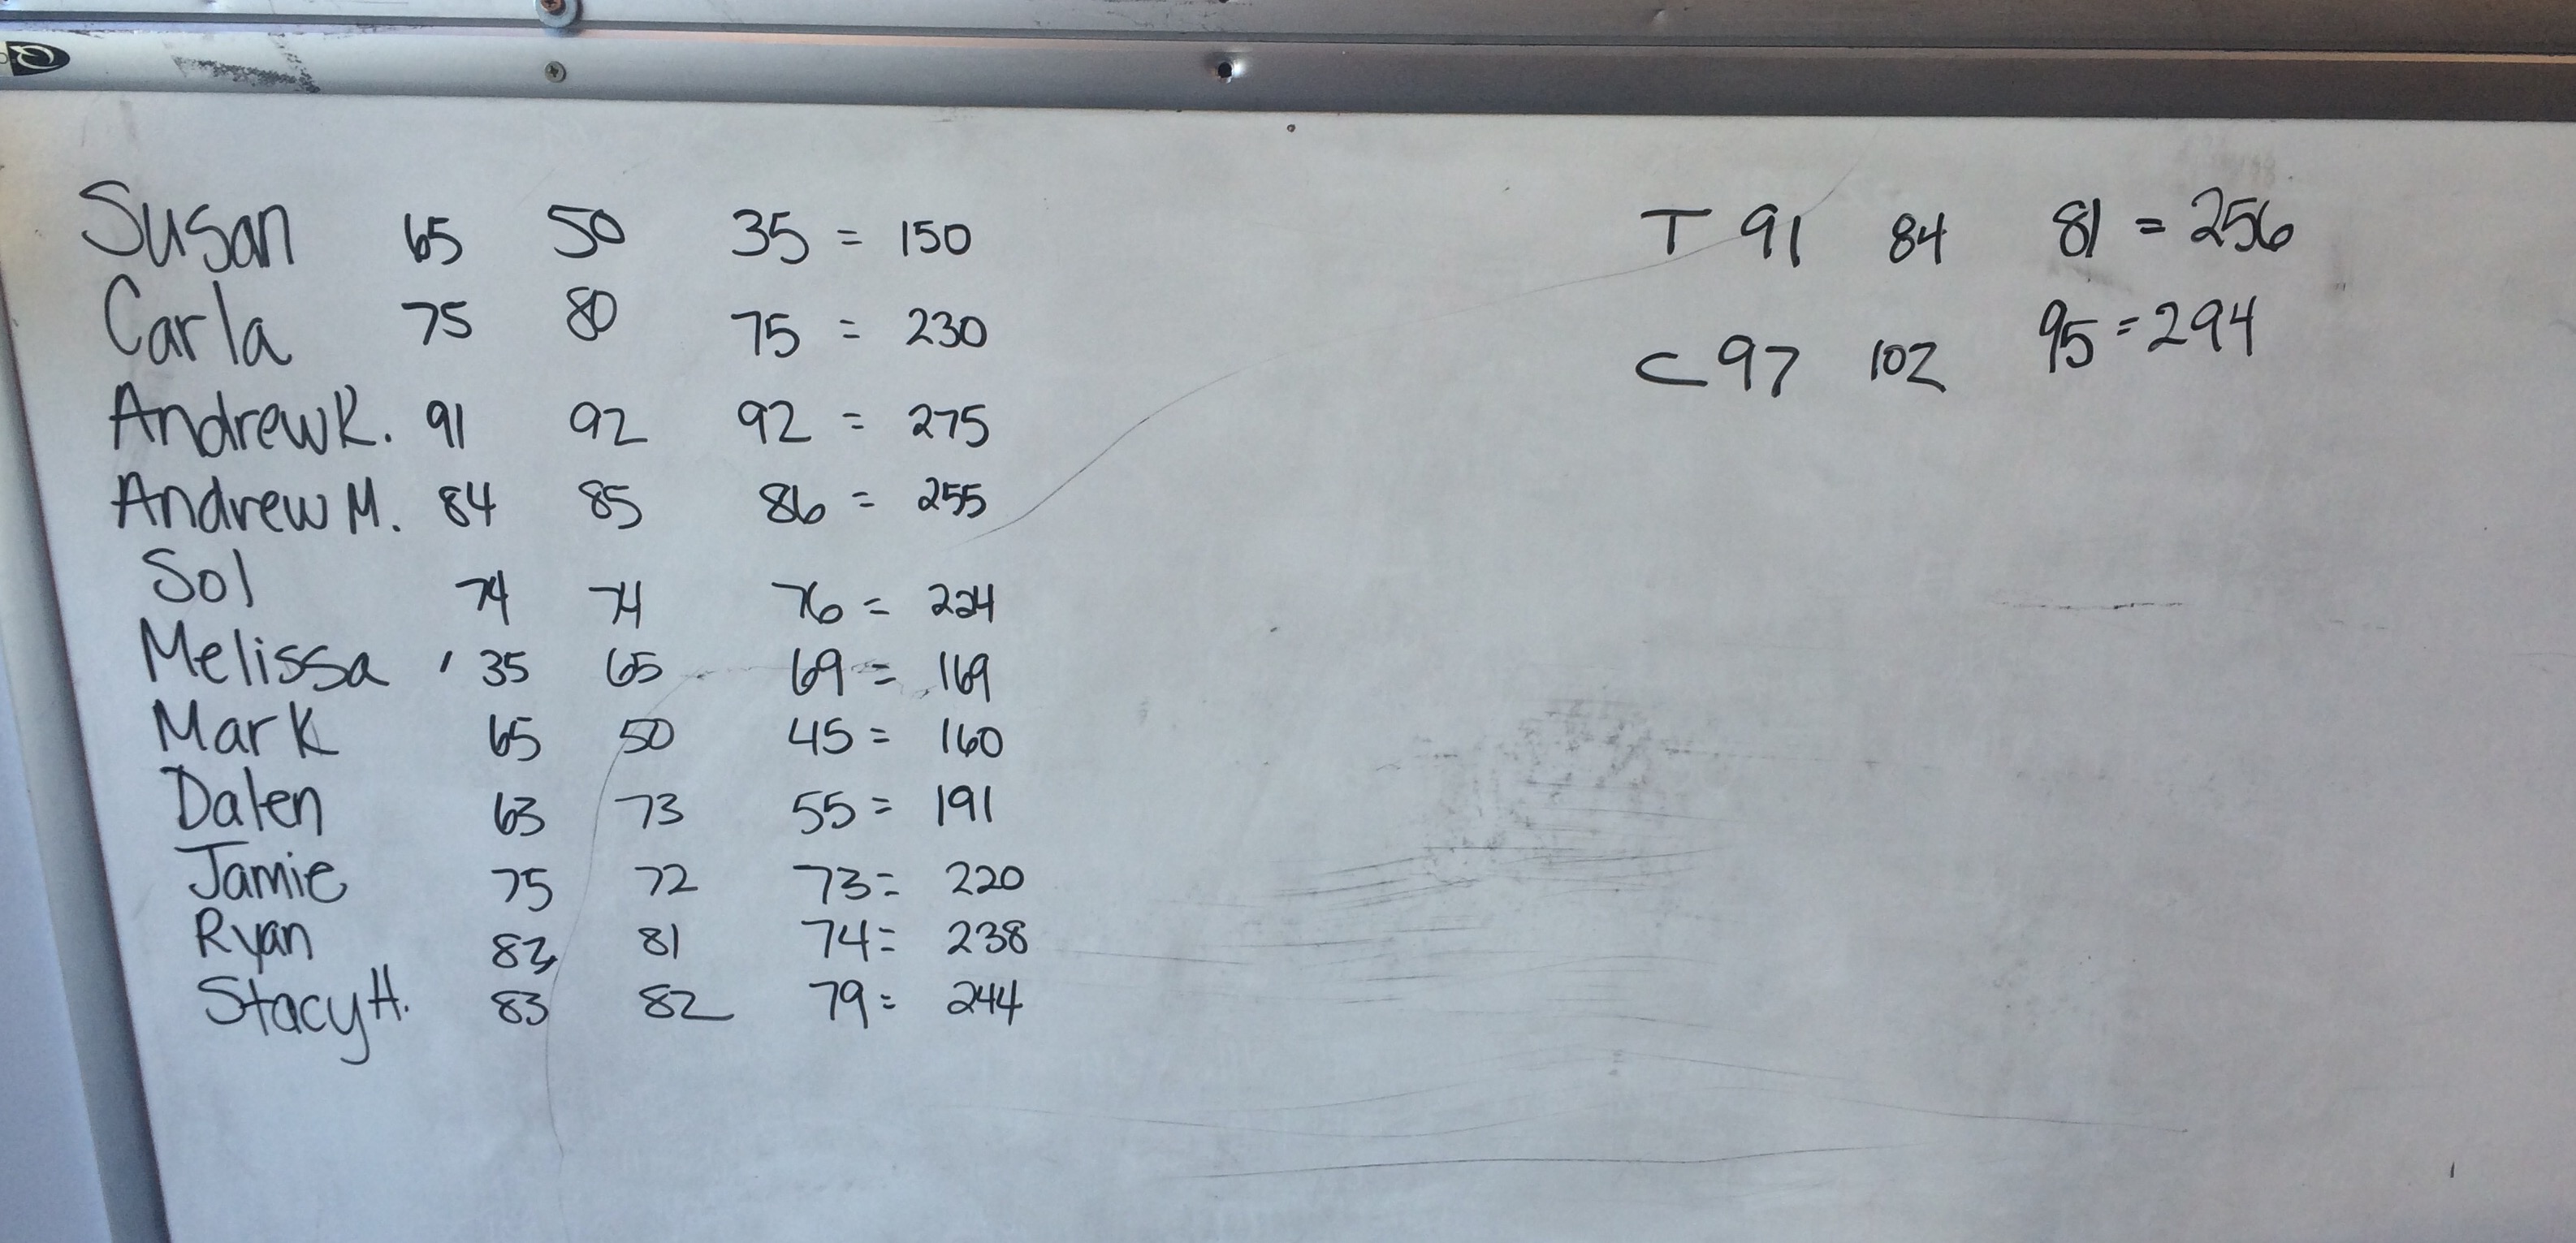 Susan 65 50 35 = 150
Carla 75 80 75 = 230
Andrew R. 91 92 92 = 275
Andrew M. 84 85 86 = 255
Sol 74 74 76 = 224
Melissa 35 65 69 = 169
Mark 65 50 45 = 160
Dalen 63 73 55 = 191
Jamie 75 72 73 = 220
Ryan 83 81 74 = 238
Stacy H. 83 82 79 = 244
T 91 84 81 = 256
C 97 102 95 = 294